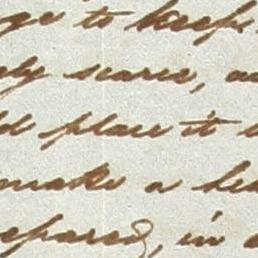 ge to keep
ely scarce, a
ld place it
make a hea
epared, in a